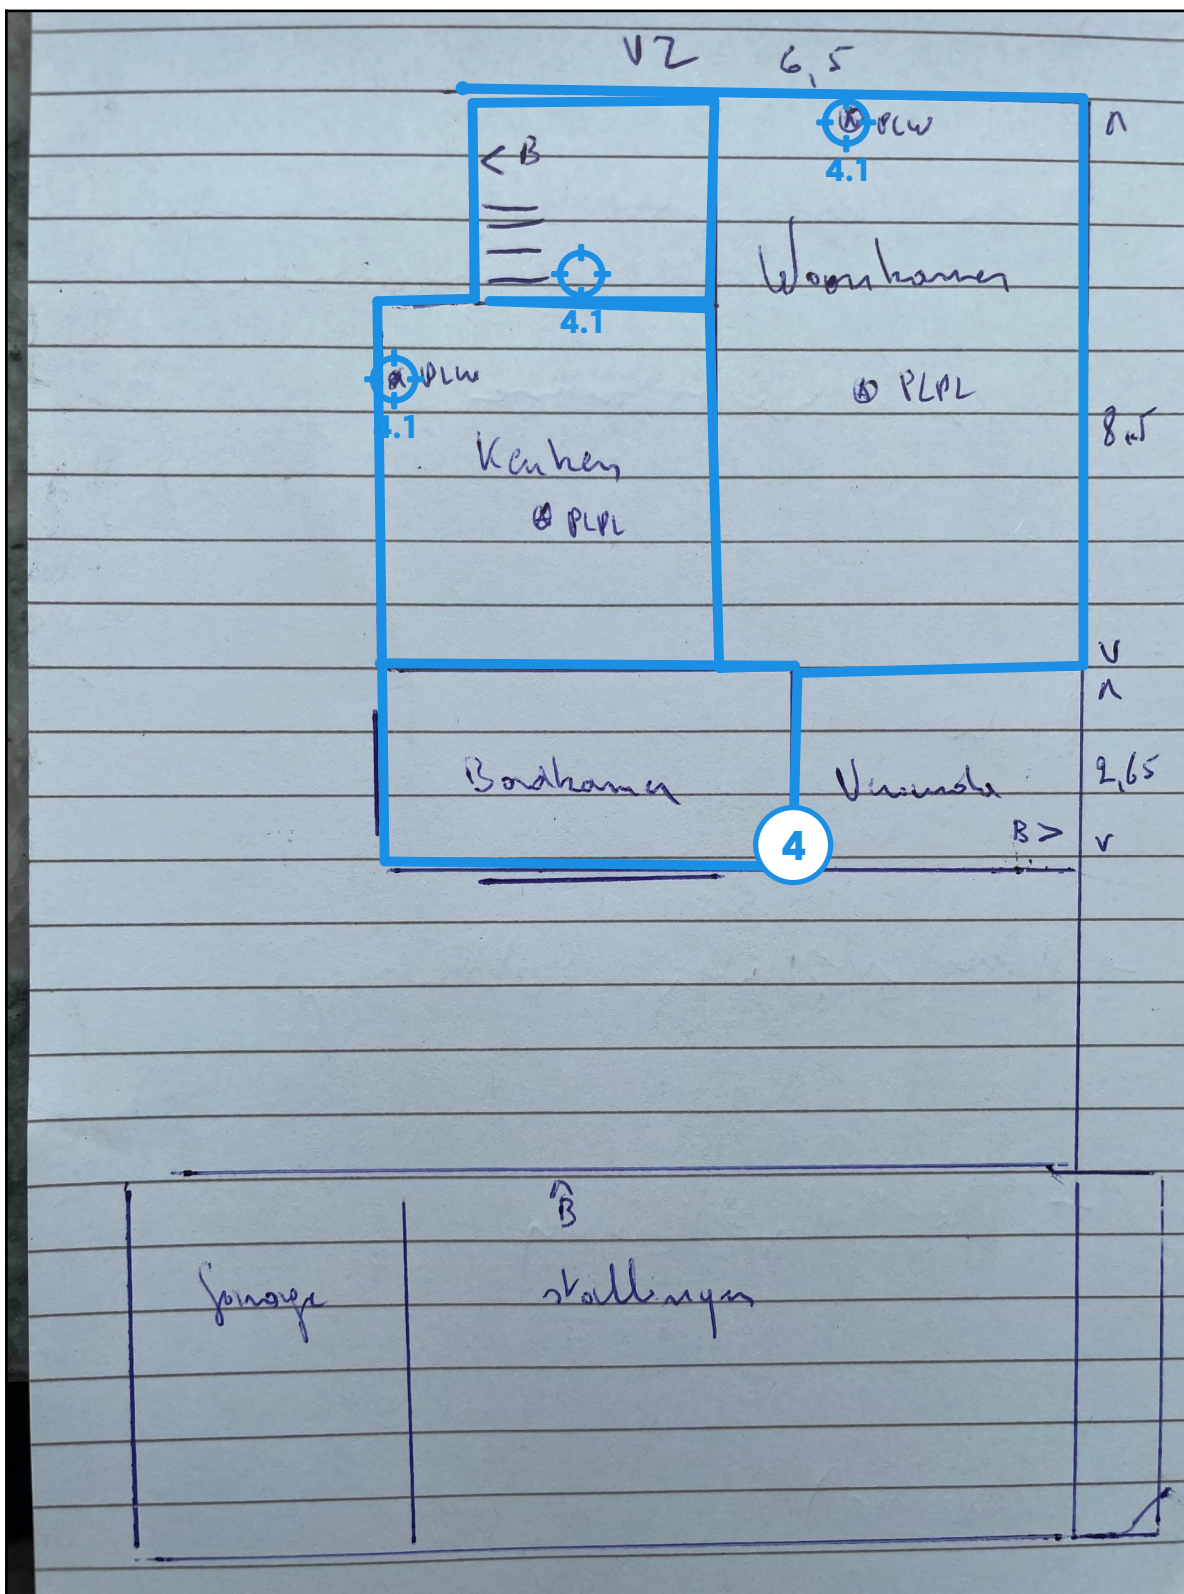 VZ 6,5
PLW
4.1
< B
Woonkamer
4.1
PLW
PLPL
4.1
8,5
Keuken
PLPL
Badkamer
Veranda
2,65
B >
4
B
Garage
stallingen